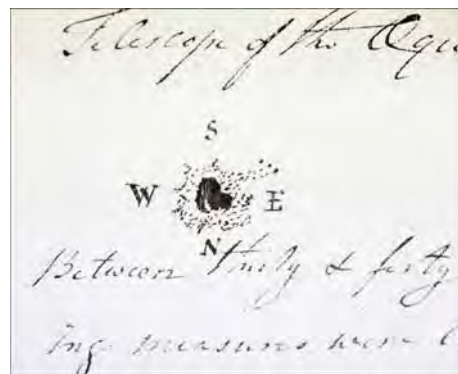 Telescope of the Equ
S
W E
N
Between thirty & forty
ing measures were